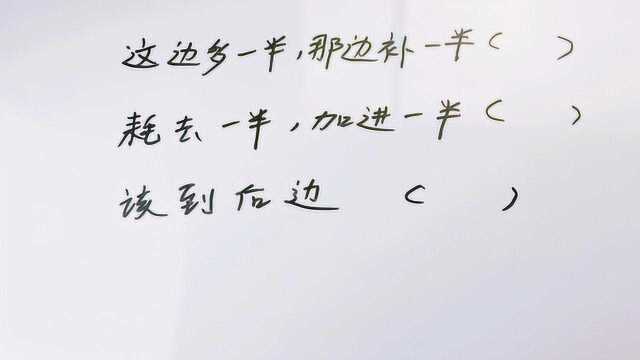 这边多一半,那边补一半( )
耗去一半,加进一半( )
该到后边 ( )